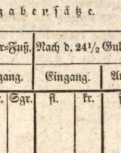 gabensätze.
r-Fuß. Nach d. 24½ Gul
gang. Eingang. Au
r. Sgr. fl. kr. f